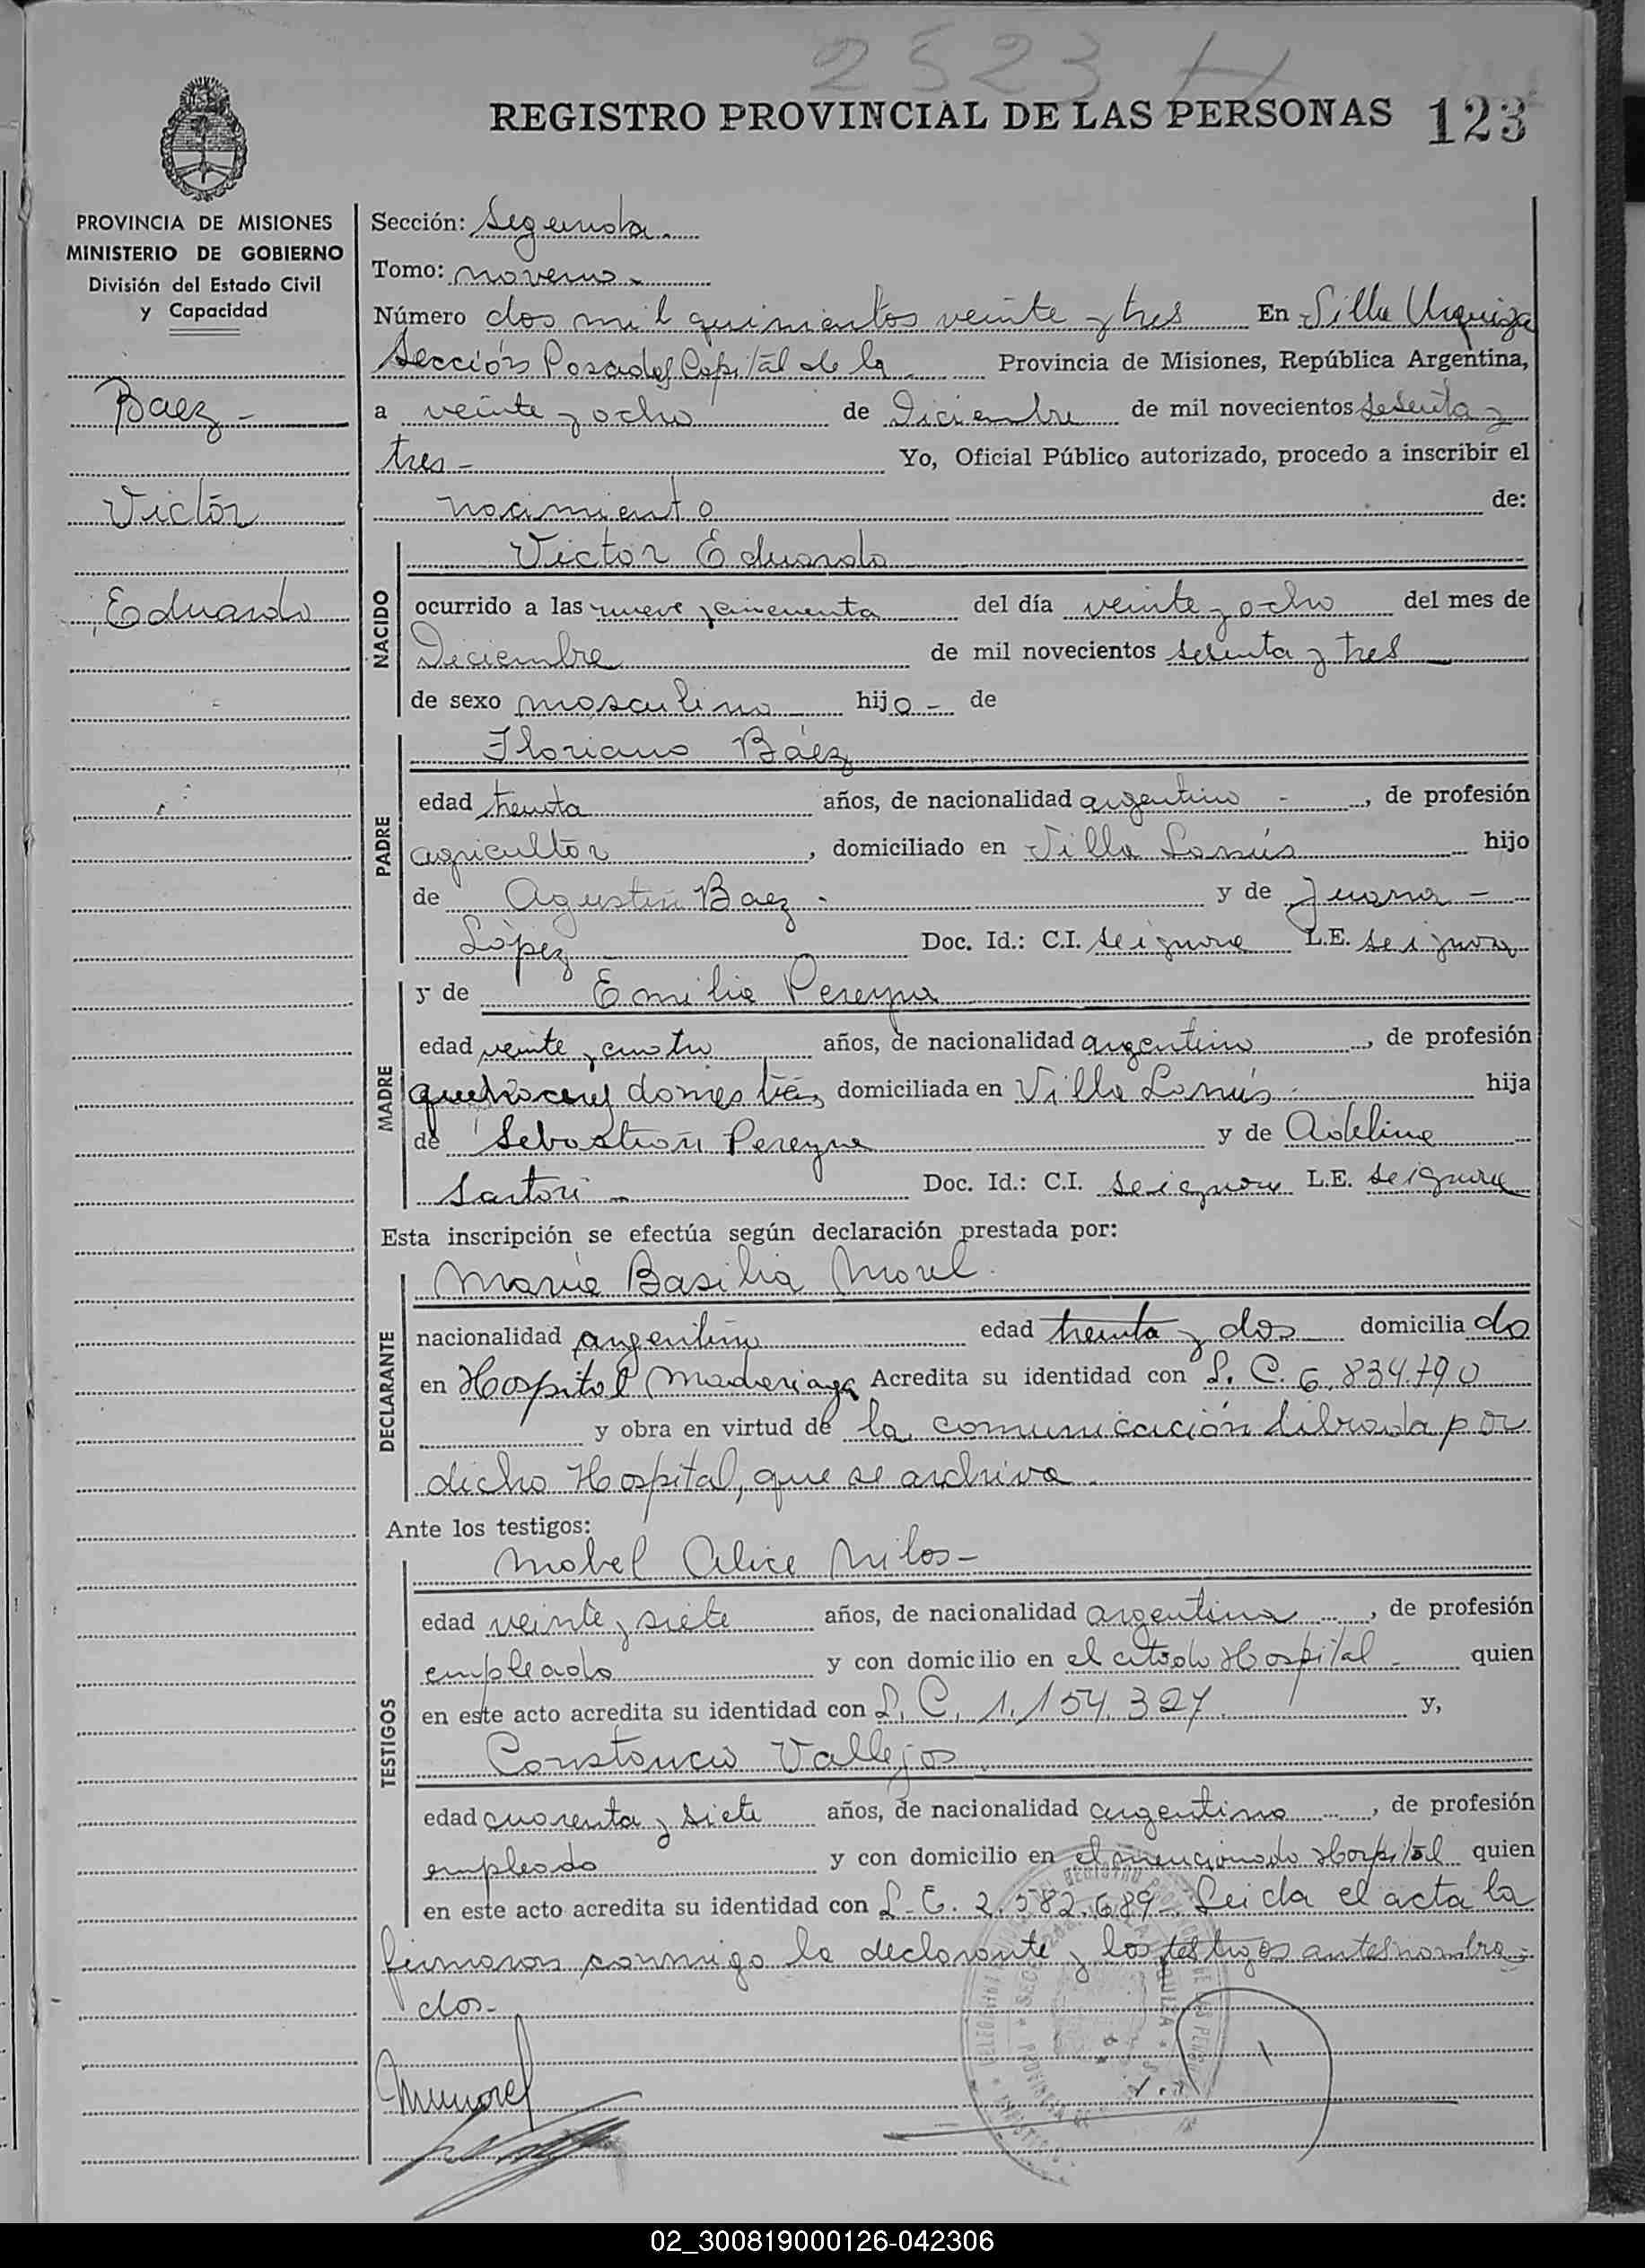 2523 H
REGISTRO PROVINCIAL DE LAS PERSONAS 123
PROVINCIA DE MISIONES
MINISTERIO DE GOBIERNO
División del Estado Civil
y Capacidad
Baez -
Victór
Eduardo
Sección: Segunda.
Tomo: noveno -
Número dos mil quinientos veinte y tres En Villa Urquiza
Sección Posadas Capital de la Provincia de Misiones, República Argentina,
a veinte y ocho de Diciembre de mil novecientos sesenta y
tres - Yo, Oficial Público autorizado, procedo a inscribir el
nacimiento de:
NACIDO
Victor Eduardo
ocurrido a las nueve y cincuenta del día veinte y ocho del mes de
Diciembre de mil novecientos sesenta y tres
de sexo masculino hijo - de
PADRE
Floriano Báez
edad treinta años, de nacionalidad argentino - , de profesión
agricultor , domiciliado en Villa Lanús hijo
de Agustin Baez - y de Juana -
López Doc. Id.: C.I. se ignora L.E. se ignora
MADRE
y de Emilia Pereyra
edad veinte y cuatro años, de nacionalidad argentina , de profesión
quehaceres domesticos domiciliada en Villa Lanús - hija
de Sebastian Pereyra y de Adelina
Sartori - Doc. Id.: C.I. se ignora L.E. se ignora
Esta inscripción se efectúa según declaración prestada por:
DECLARANTE
Maria Basilia Morel.
nacionalidad argentina edad treinta y dos domiciliado
en Hospital Madariaga Acredita su identidad con L. C. 6.834.790
y obra en virtud de la comunicación librada por
dicho Hospital, que se archiva -
Ante los testigos:
TESTIGOS
Mabel Alice Milos -
edad veinte y siete años, de nacionalidad argentina , de profesión
empleada y con domicilio en el citado Hospital - quien
en este acto acredita su identidad con L. C. 1.154.327 y,
Constancio Vallejos
edad cuarenta y siete años, de nacionalidad argentino , de profesión
empleado y con domicilio en el mencionado Hospital quien
en este acto acredita su identidad con L. E. 2.582.689 - Leida el acta la
firmaron conmigo la declarante y los testigos antesnombra-
dos -
02_300819000126-042306